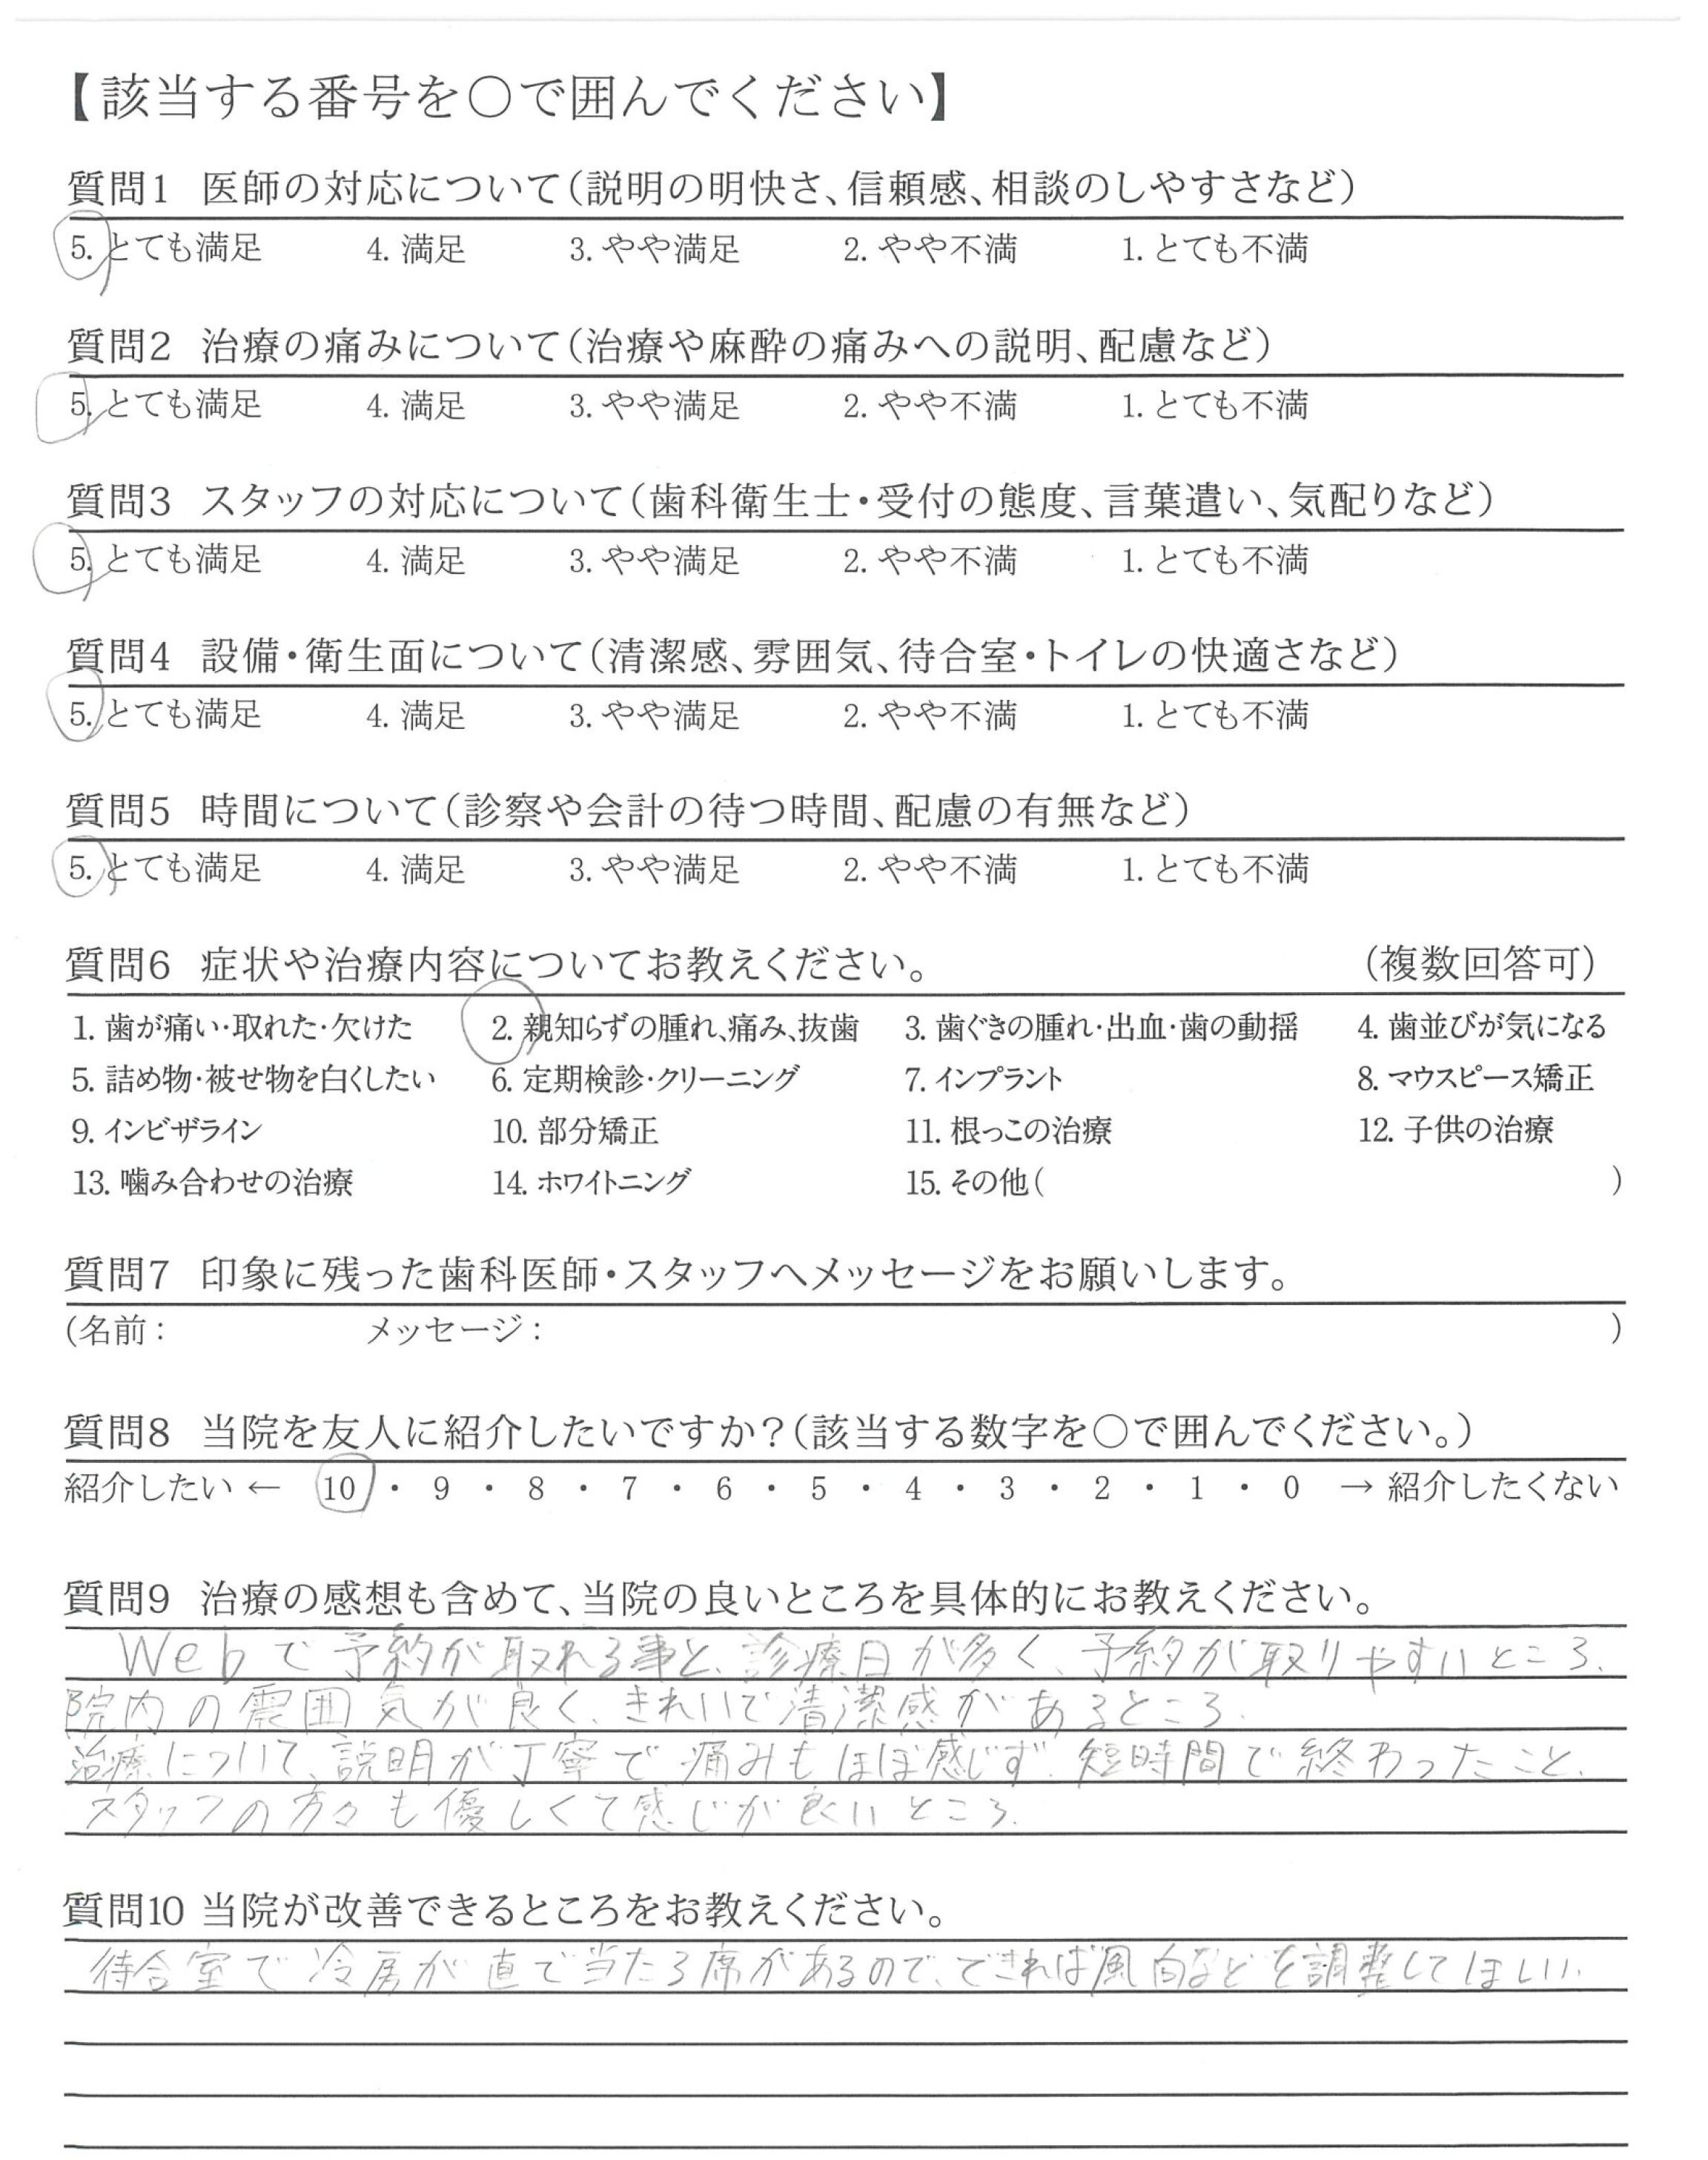 【該当する番号を○で囲んでください】
質問1 医師の対応について(説明の明快さ、信頼感、相談のしやすさなど)
5. とても満足 4. 満足 3. やや満足 2. やや不満 1. とても不満
質問2 治療の痛みについて(治療や麻酔の痛みへの説明、配慮など)
5. とても満足 4. 満足 3. やや満足 2. やや不満 1. とても不満
質問3 スタッフの対応について(歯科衛生士・受付の態度、言葉遣い、気配りなど)
5. とても満足 4. 満足 3. やや満足 2. やや不満 1. とても不満
質問4 設備・衛生面について(清潔感、雰囲気、待合室・トイレの快適さなど)
5. とても満足 4. 満足 3. やや満足 2. やや不満 1. とても不満
質問5 時間について(診察や会計の待つ時間、配慮の有無など)
5. とても満足 4. 満足 3. やや満足 2. やや不満 1. とても不満
質問6 症状や治療内容についてお教えください。 (複数回答可)
1. 歯が痛い・取れた・欠けた 2. 親知らずの腫れ、痛み、抜歯 3. 歯ぐきの腫れ・出血・歯の動揺 4. 歯並びが気になる
5. 詰め物・被せ物を白くしたい 6. 定期検診・クリーニング 7. インプラント 8. マウスピース矯正
9. インビザライン 10. 部分矯正 11. 根っこの治療 12. 子供の治療
13. 噛み合わせの治療 14. ホワイトニング 15. その他( )
質問7 印象に残った歯科医師・スタッフへメッセージをお願いします。
(名前: メッセージ: )
質問8 当院を友人に紹介したいですか?(該当する数字を○で囲んでください。)
紹介したい ← 10 ・ 9 ・ 8 ・ 7 ・ 6 ・ 5 ・ 4 ・ 3 ・ 2 ・ 1 ・ 0 → 紹介したくない
質問9 治療の感想も含めて、当院の良いところを具体的にお教えください。
Webで予約が取れる事と、診療日が多く、予約が取りやすいところ。
院内の雰囲気が良く、きれいで清潔感があるところ。
治療について、説明が丁寧で痛みもほぼ感じず、短時間で終わったこと。
スタッフの方々も優しくて感じが良いところ。
質問10 当院が改善できるところをお教えください。
待合室で冷房が直で当たる席があるので、できれば風向などを調整してほしい。